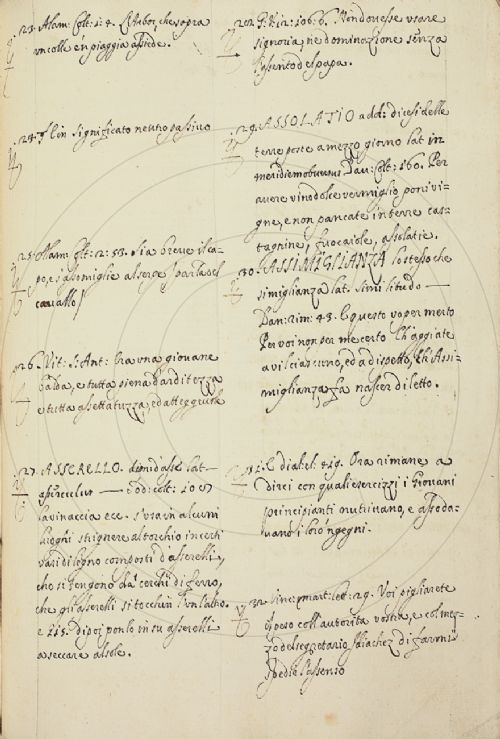 23. Alam: Colt: 1: 4. L'Autor, che sopra
un colle, o n piaggia assiede.
24. § E in significato neutro passivo
25. Alam: Colt: 2: 53. Sia breve il ca-
po, e s'assomiglie al serpe
cavallo
26. Vit: S: Ant: Era una giovane
balda, e tutta piena d'arditezza
e tutta assettatuzza, ed atteggevole
27. ASSERELLO. dim: d'asse lat-
assiculus — Sod: colt: 10
la vinaccia ecc. s'usa in alcuni
luoghi strignere al torchio in certi
vasi di legno composti d'asserelli,
che si tengono da' cerchi di ferro,
che gli asserelli si tocchin l'un l'altro.
e 115. dipoi ponlo in su asserelli
a seccare al sole.
28. G: Vir: 106: 6. Non dovesse usare
signoria, ne dominazione senza
l'assento del papa.
29. ASSOLATIO add: dicesi delle
terre poste a mezzo giorno lat in
meridiem obversus Dav: Colt: 160. Per
avere vino dolce vermiglio poni vi-
gne, e non pancate in terre cas-
tagnine, fuocaiole, assolatie.
30. ASSIMIGLIANZA lo stesso che
simiglianza lat. similitudo —
Dan: rim: 43. E questo vo per merto
Per voi non per me certo Ch'aggiate
a vil ciascuno, ed a dispetto, Ch'Assi-
miglianza fa nascer diletto.
31. E dial: el: 419. Ora rimane a
dirci con quali esercizzi i Giovani
principianti nutrivano, e assoda-
vano i loro 'ngegni.
32. Vinc: mart: let: 29. Voi pigliarete
il peso coll'autorità vostra, e col mez-
zo del segretario Saiachez di farmi
spedir l'assenso